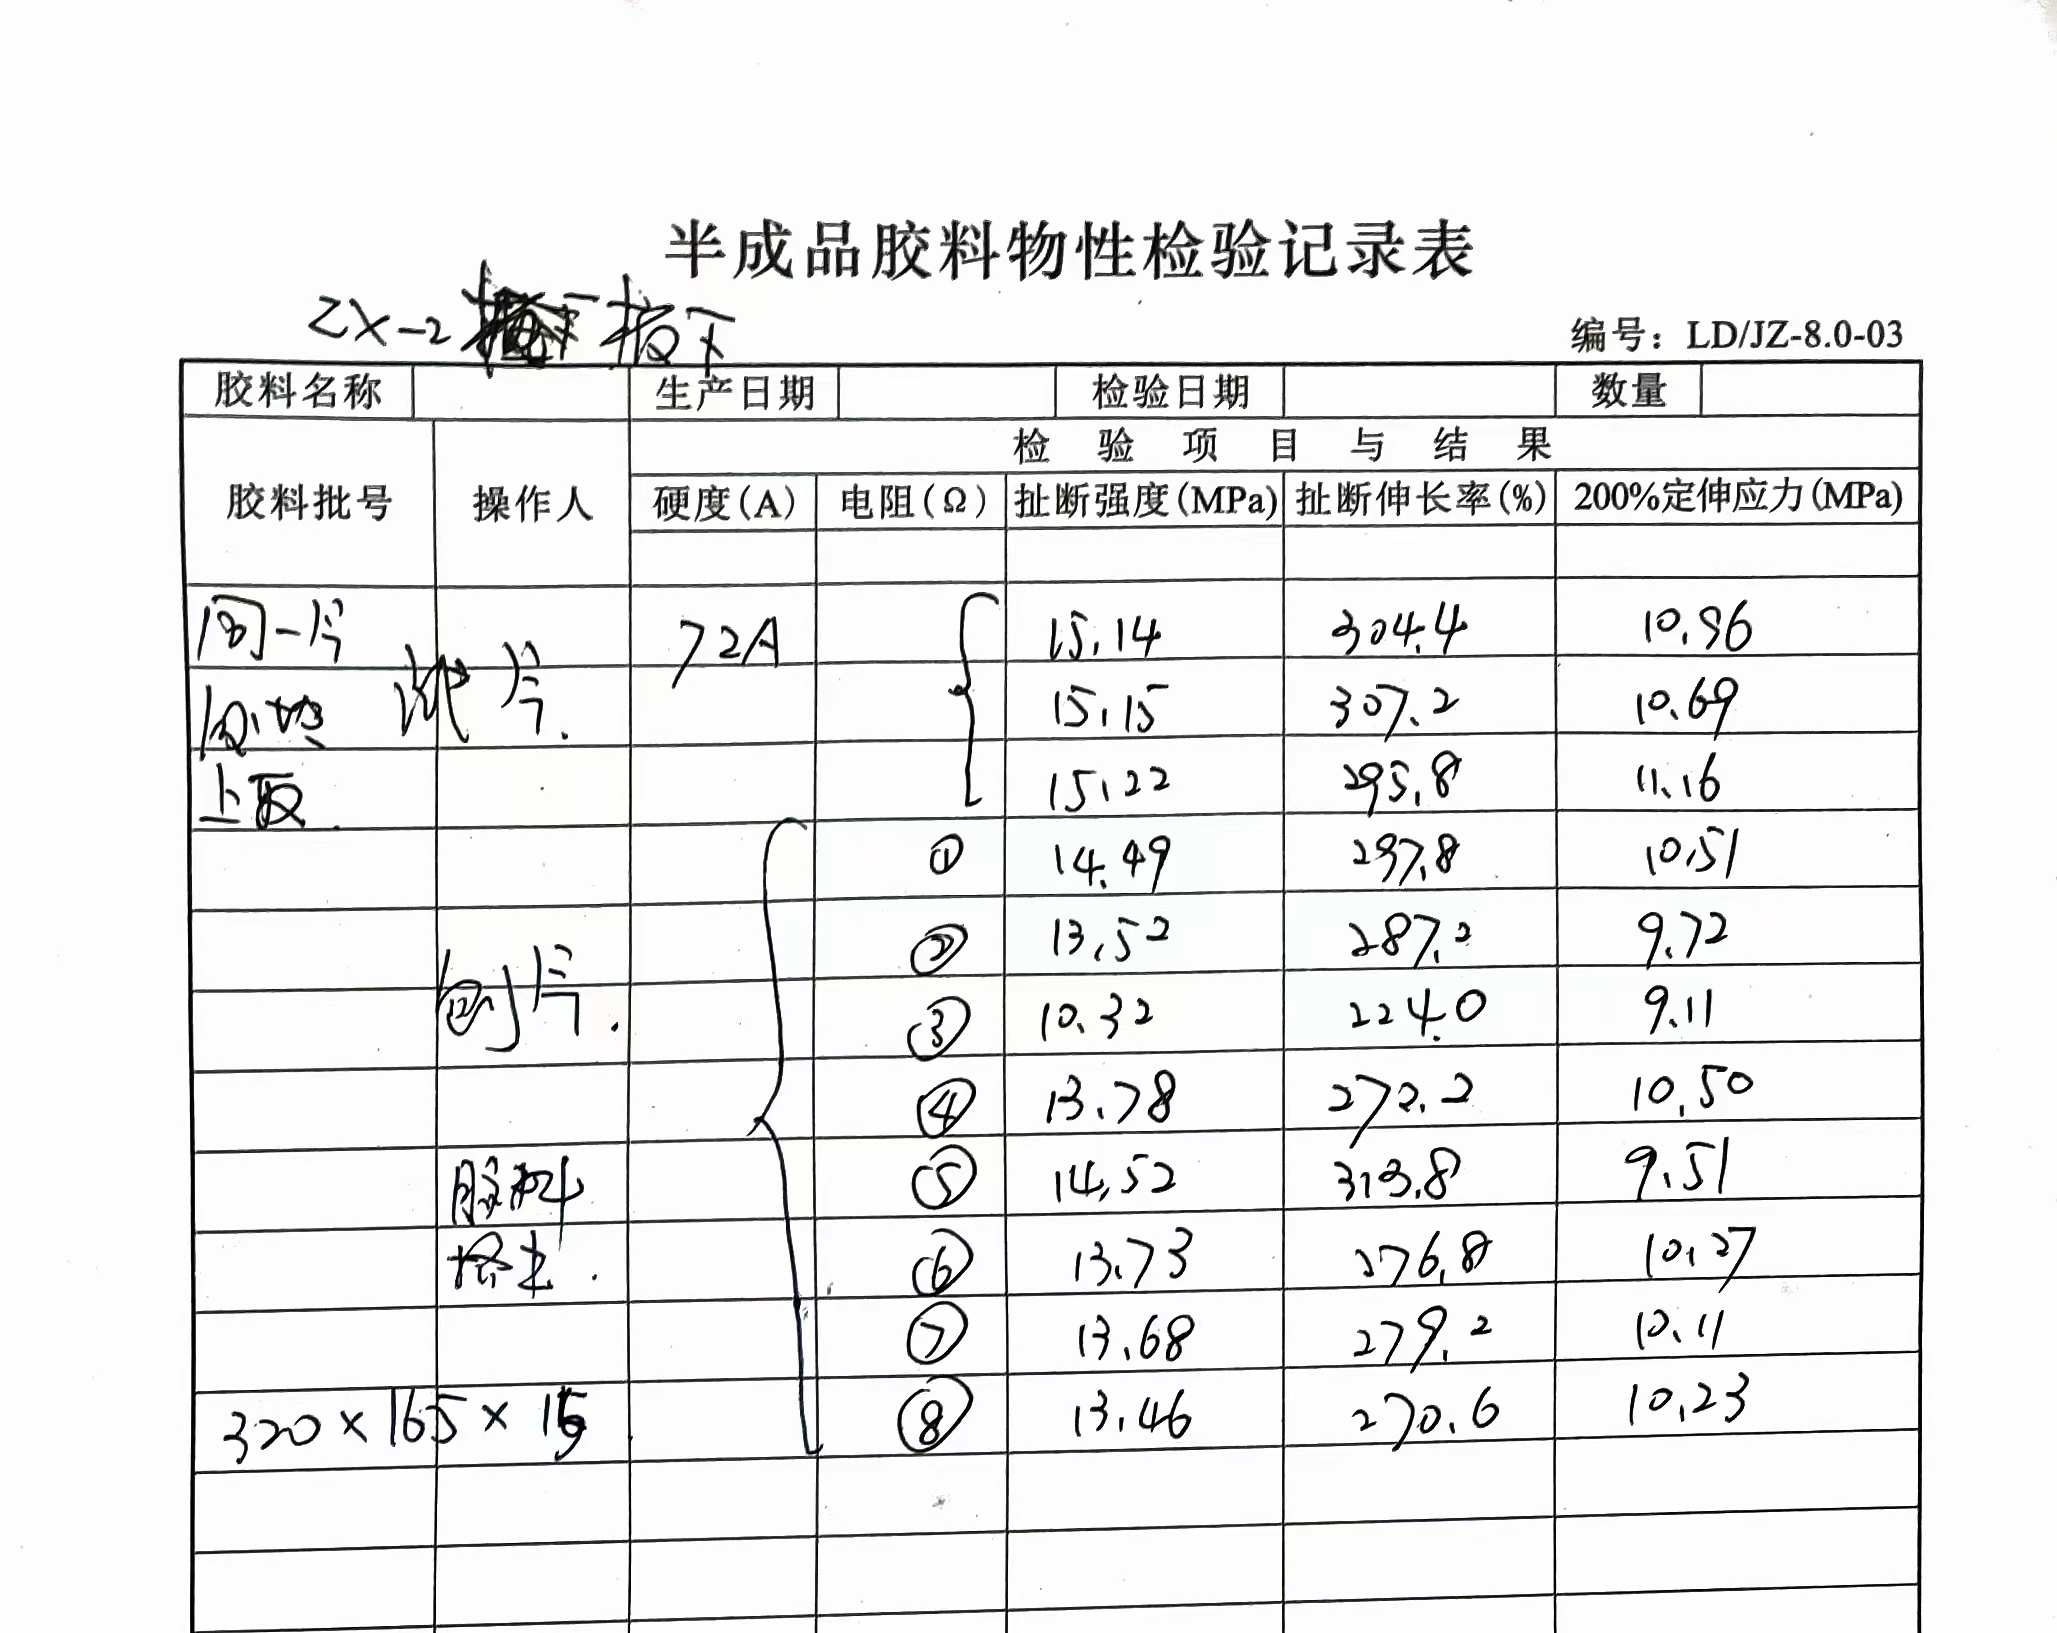 半成品胶料物性检验记录表
ZX-2 按下
编号：LD/JZ-8.0-03
胶料名称 生产日期 检验日期 数量
检验项目与结果
胶料批号 操作人 硬度(A) 电阻(Ω) 扯断强度(MPa) 扯断伸长率(%) 200%定伸应力(MPa)
同一片 72A 15.14 304.4 10.96
试片. 15.15 307.2 10.69
上取. 15.22 295.8 11.16
① 14.49 297.8 10.51
② 13.52 287.2 9.72
制片. ③ 10.32 224.0 9.11
④ 13.78 272.2 10.50
胶料 ⑤ 14.52 313.8 9.51
⑥ 13.73 276.8 10.27
⑦ 13.68 279.2 10.11
320×165×15 ⑧ 13.46 270.6 10.23